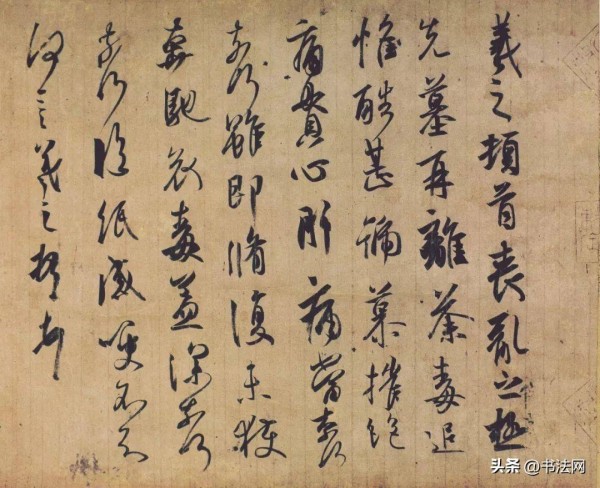 羲之頓首喪亂之極
先墓再離荼毒追
惟酷甚號慕摧絕
痛貫心肝痛當奈何
奈何雖即脩復未獲
奔馳哀毒益深奈何
奈何臨紙感哽不知
何言羲之頓首頓首
头条 @书法网